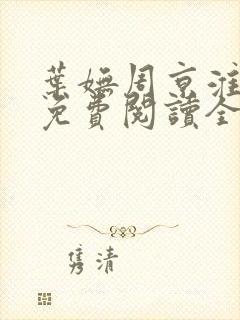 葉嫵周京淮
免費閱讀全
隽清